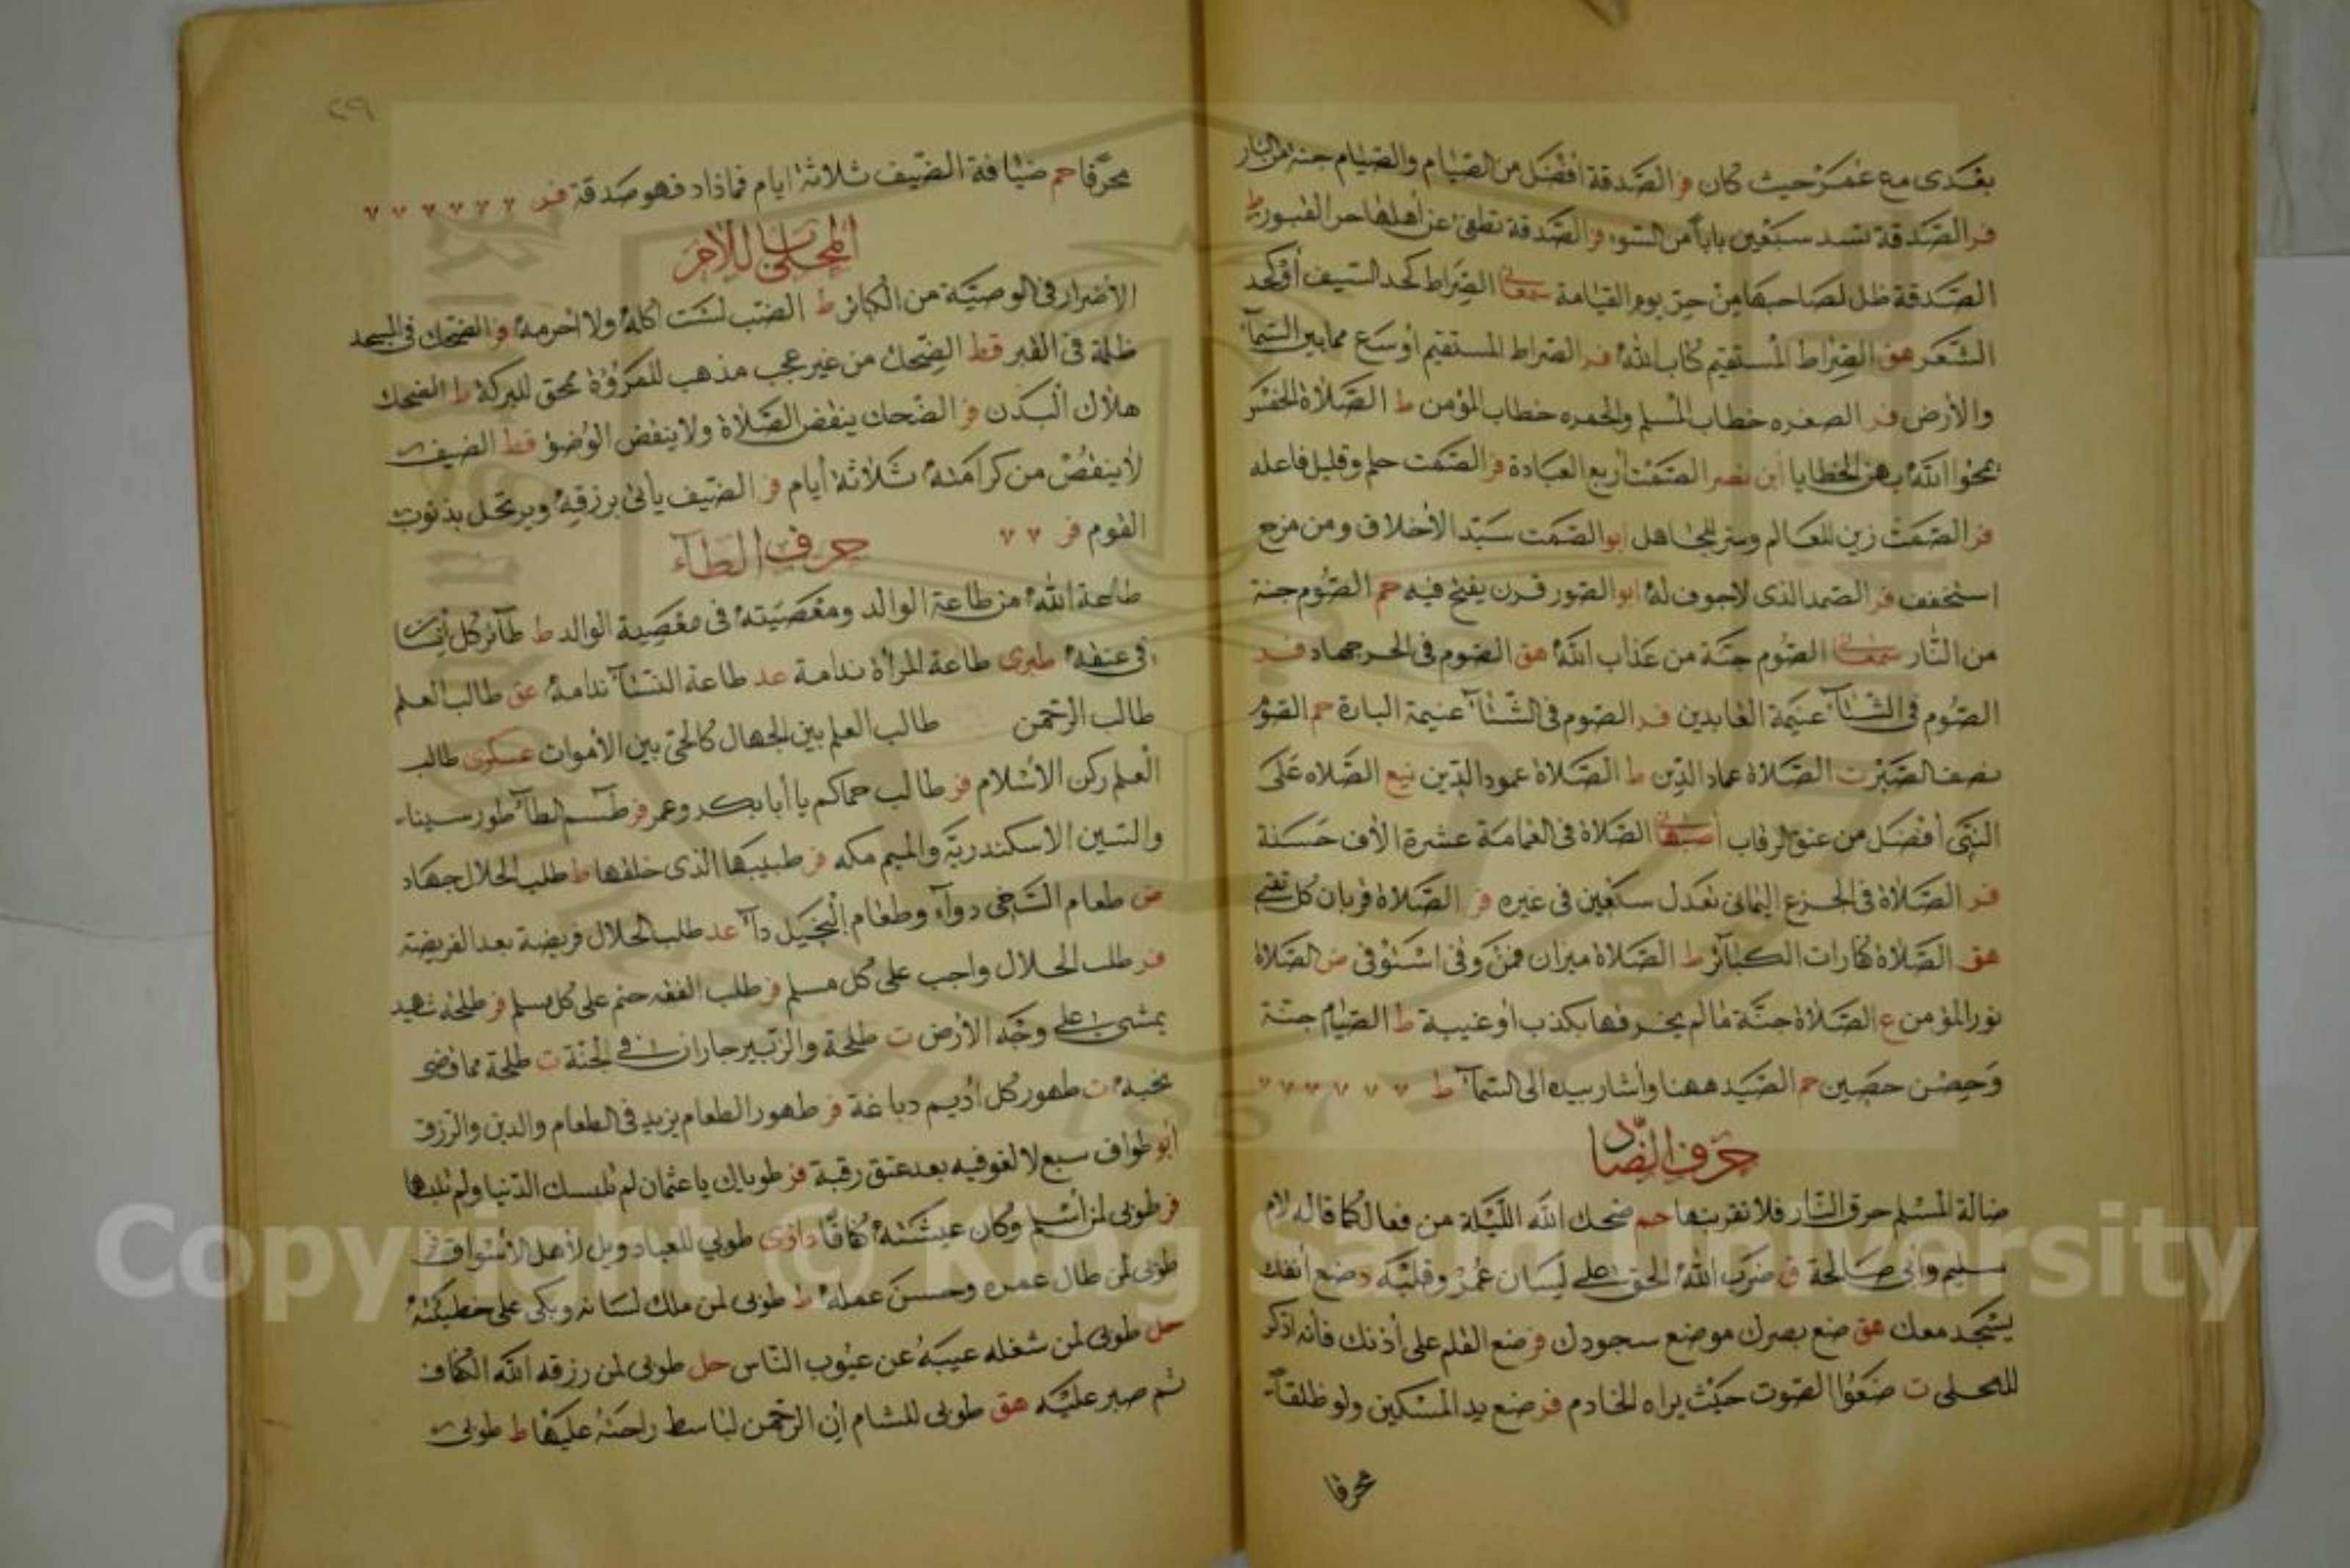 بعدى مع عمر حيث كان فر الصدقة أفضل من الصيام والصيام جنة من النار
فر الصدقة تسد سبعين بابا من السوء فر الصدقة تطفئ عن أهلها حر القبور ط
الصدقة ظل لصاحبها من حر يوم القيامة سمعانى الصراط كحد السيف أو كحد
الشعر هق الصراط المستقيم كتاب الله فر الصراط المستقيم أوسع مما بين السمآء
والأرض فر الصفره خطاب المسلم والحمره خطاب المؤمن ط الصلاة الخمس
يمحوا الله بهن الخطايا ابن نصر الصمت أربع العبادة فر الصمت حلم وقليل فاعله
فر الصمت زين للعالم وستر للجاهل ابو الصمت سيد الأخلاق ومن مزح
استخفف فر الصمد الذى لا جوف له ابو الصور قرن ينفخ فيه حم الصوم جنة
من النار سمعانى الصوم جنة من عذاب الله هق الصوم فى الحر جهاد فر
الصوم فى الشتآء غنيمة العابدين فر الصوم فى الشتآء غنيمة البارة حم الصوم
نصف الصبر ت الصلاة عماد الدين ط الصلاة عمود الدين نيع الصلاه على
النبى أفضل من عتق الرقاب أصبهانى الصلاة فى العمامة عشرة الاف حسنة
فر الصلاة فى الجزع اليمانى تعدل سبعين فى غيره فر الصلاة قربان كل تقى
هق الصلاة كفارات الكبآئر ط الصلاة ميزان فمن وفى استوفى ض الصلاة
نور المؤمن ع الصلاة جنة ما لم يخرقها بكذب أو غيبة ط الصيام جنة
وحصن حصين حم الصيد ههنا وأشار بيده الى السمآء ط
حرف الضاد
ضالة المسلم حرق النار فلا تقربنها حم ضحك الله الليلة من فعالكما قاله لام
سليم وأبى صالحة ق ضرب الله الحق على لسان عمر وقلبه ضع أنفك
يسجد معك هق ضع بصرك موضع سجودك فر ضع القلم على أذنك فأنه اذكر
للمملى ت ضعوا الصوت حيث يراه الخادم فر ضع يد المسكين ولو ظلفا
محرقا
٢٩
محرقا حم ضيافة الضيف ثلاثة ايام فما زاد فهو صدقة فر
المحلى باللام
الأضرار فى الوصية من الكبائر ط الضب لست اكله ولا احرمه فر الضحك فى المسجد
ظلمة فى القبر قط الضحك من غير عجب مذهب للمرؤة ممحق للبركة ط الضحك
هلاك البدن فر الضحك ينقض الصلاة ولا ينقض الوضؤ قط الضيف
لا ينقص من كرامته ثلاثة أيام فر الضيف يأتى برزقه ويرتحل بذنوب
القوم فر
حرف الطآء
طاعة الله من طاعة الوالد ومعصيته فى معصية الوالد ط طآئر كل انسان
فى عنقه طبرى طاعة المرأة ندامة عد طاعة النسآء ندامة عق طالب العلم
طالب الرحمن طالب العلم بين الجهال كالحى بين الأموات عسكرى طالب
العلم ركن الأسلام فر طالب حماكم يا أبا بكر وعمر فر طسم الطآء طور سيناء
والسين الاسكندرية والميم مكه فر طبيبها الذى خلقها ط طلب الحلال جهاد
ض طعام السخى دوآء وطعام البخيل دآء عد طلب الحلال فريضة بعد الفريضة
فر طلب الحلال واجب على كل مسلم فر طلب الفقه حتم على كل مسلم فر طلحة شهيد
يمشى على وجه الأرض ت طلحة والزبير جاران فى الجنة ت طلحة مما قضى
نحبه ت طهور كل أديم دباغة فر طهور الطعام يزيد فى الطعام والدين والرزق
أبو طواف سبع لا لغو فيه بعد عتق رقبة فر طوباك يا عثمان لم تلبسك الدنيا ولم تلبسها
فر طوبى لمن أسلم وكان عيشته كفاقا داذى طوبى للعباد ويل لأهل الأسواق فر
طوبى لمن طال عمره وحسن عمله ط طوبى لمن ملك لسانه وبكى على خطيئته
حل طوبى لمن شغله عيبه عن عيوب الناس حل طوبى لمن رزقه الله الكفاف
ثم صبر عليه هق طوبى للشام إن الرحمن لباسط راحته عليها ط طوبى
Copyright © King Saud University
1957